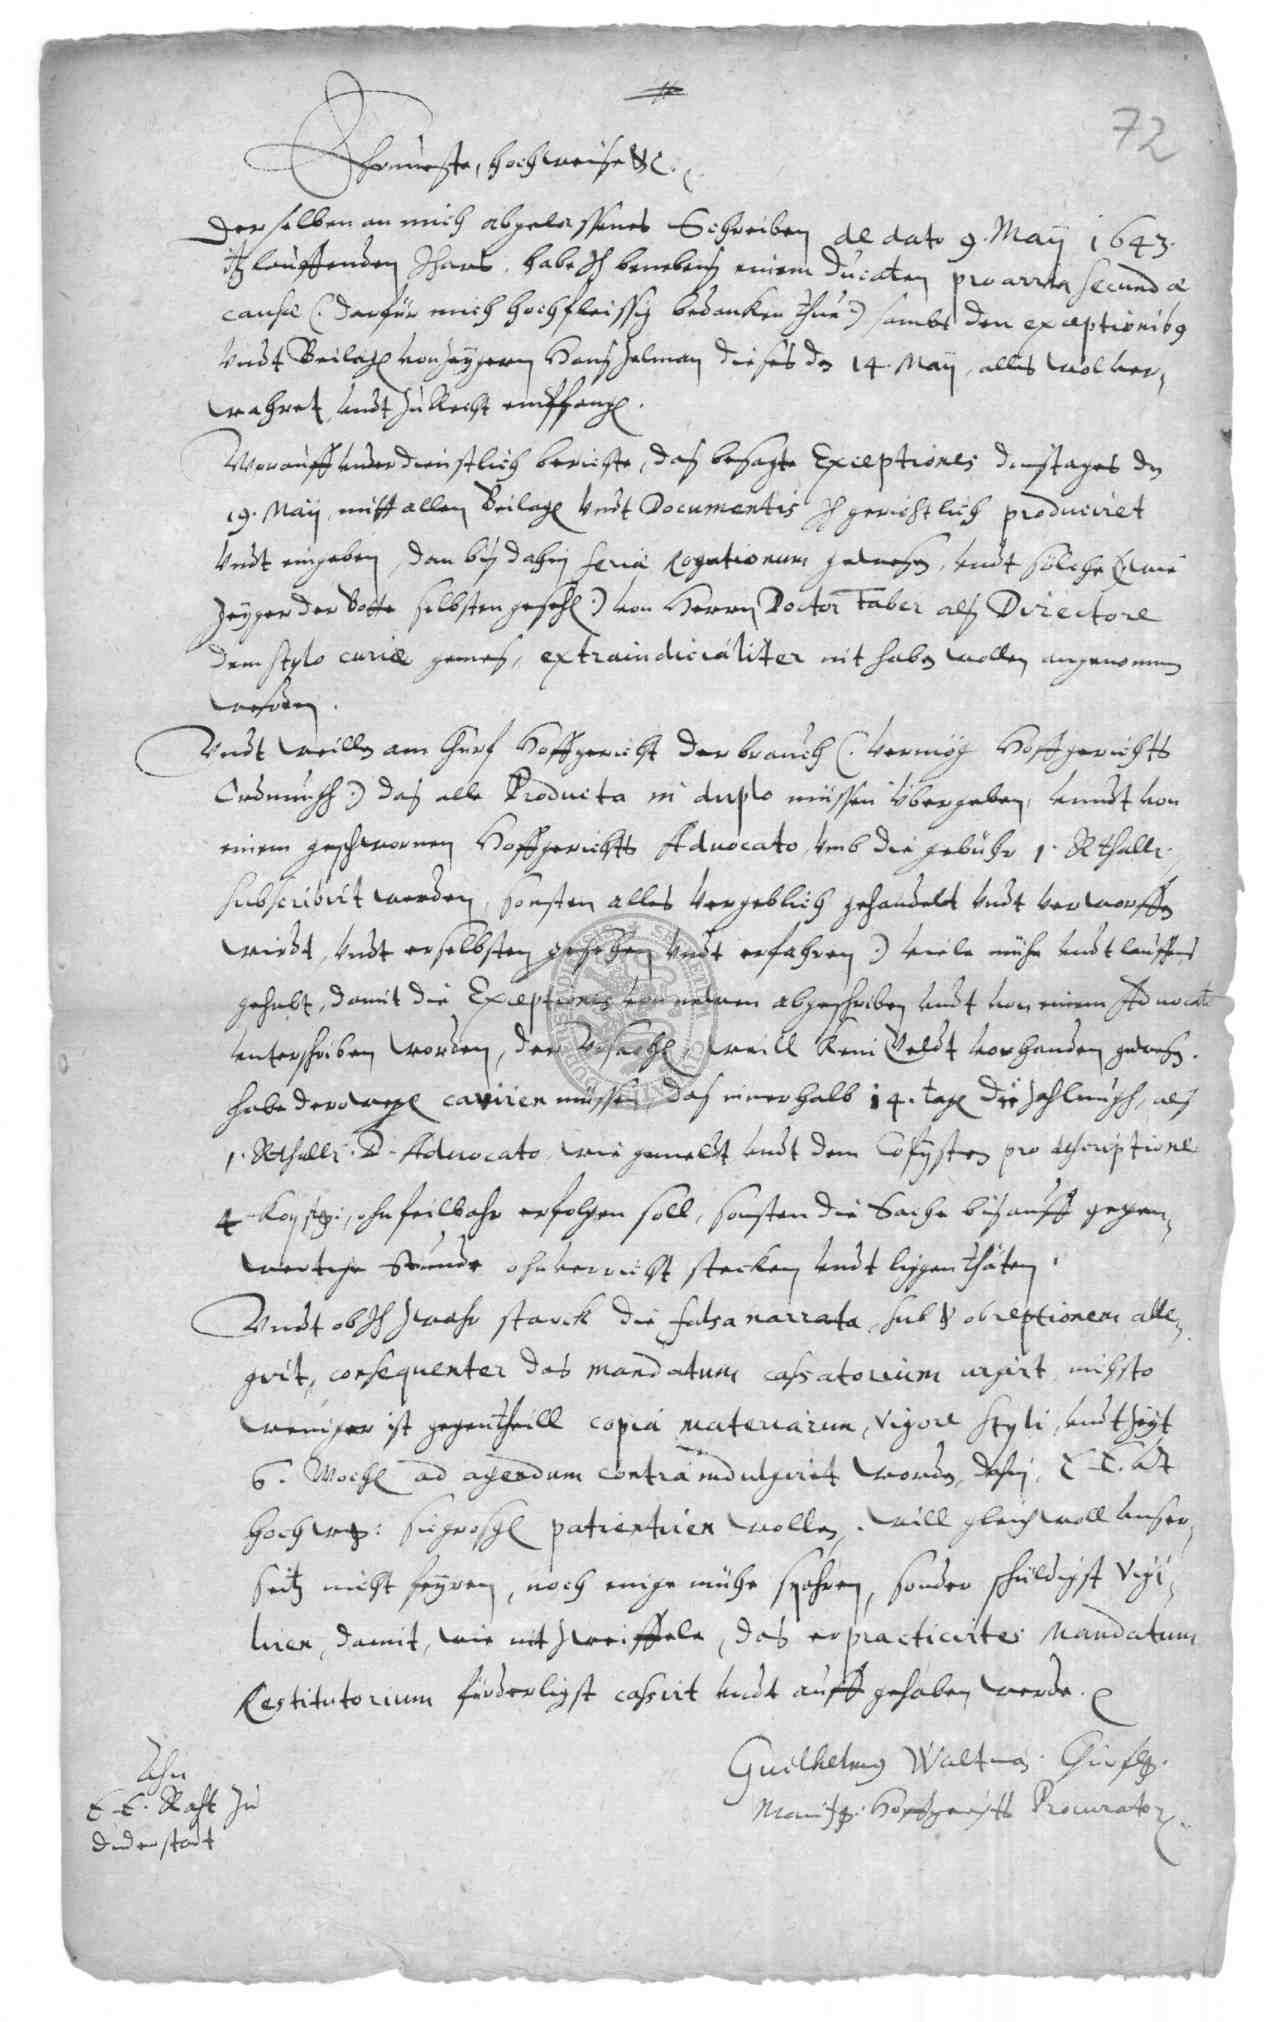 72
Ehrnueste, Hochweise &c.
Derselben an mich abgelassenes Schreiben de dato 9. Maÿ 1643.
itzlauffenden Jhars, habe Jch benebens einem Ducaten pro arrha secundæ
causæ (: darfür mich hochfleissig bedancken thue :) sambt den exceptionibus
Vndt Beilagen von Zeygern Hans Helman dieses den 14. Maÿ, alles wol ver,
wahret vndt zu Recht empfangen.
Worauff dienstlich berichte, das besagte Exceptiones dinstages den
19. Maÿ, mitt allen Beilagen Vndt Documentis Jch gerichtlich produciret
Vndt eingeben, dan bis dahin feriæ Rogationum gewesen, vndt solche (: wie
Zeyger der Botte selbsten gesehen :) von Herrn Doctor Faber als Directore
dem stylo curiæ gemes, extraiudicialiter nit haben wollen angenommen
werden.
Vndt weillen am Churf. Hoffgericht der brauch (: vermög Hoffgerichts
Ordnungh :) das alle Producta in duplo müssen vbergeben, vnndt von
einem geschwornen Hoffgerichts Aduocato, vmb die gebühr 1. Rthallr.
subscribirt werden, sonsten alles vergeblich gehandelt vndt verworffen
wirdt, vndt er selbsten gesehen vndt erfahren :) viele mühe vndt lauffens
gehabt, damit die Exceptiones von newem abgeschriben vndt von einem Aduocato
vnterschriben worden, der Vrsachen, weill kein Geldt vorhanden gewesen.
habe derwegen caviren müssen, das innerhalb 14. tagen die zahlungh, als
1. Rthallr. D. Aduocato, wie gemelt vndt dem Copysten pro descriptione
4 Kopst:, ohnfeilbahr erfolgen soll, sonsten die Sache bis auff gegen,
wertige Stunde ohnverricht stecken vndt ligen thäten.
Vndt ob Jch zwahr starck die falsa narrata, sub & obreptionem alle,
girt, consequenter das mandatum cassatorium urgirt, nichsto
weniger ist gegentheill copia materiarum, vigore styli, vndt zeyt
6. Wochen ad agendum contra indulgirt worden, dahin E. E. vndt
Hochw: sich patientiren wollen, will gleichwoll vnser,
seitz nicht feyren, noch einige mühe spahren, sonder schuldigst vigi,
liren, damit, wie nit zweiffele, das erpracticirtes Mandatum
Restitutorium fürderligst cassirt vndt auffgehoben werde.
Guilhelmus Waltman. Churf.
Maintz: Hoffgerichts Procurator.
Ahn
E. E. Raht zu
Duderstatt